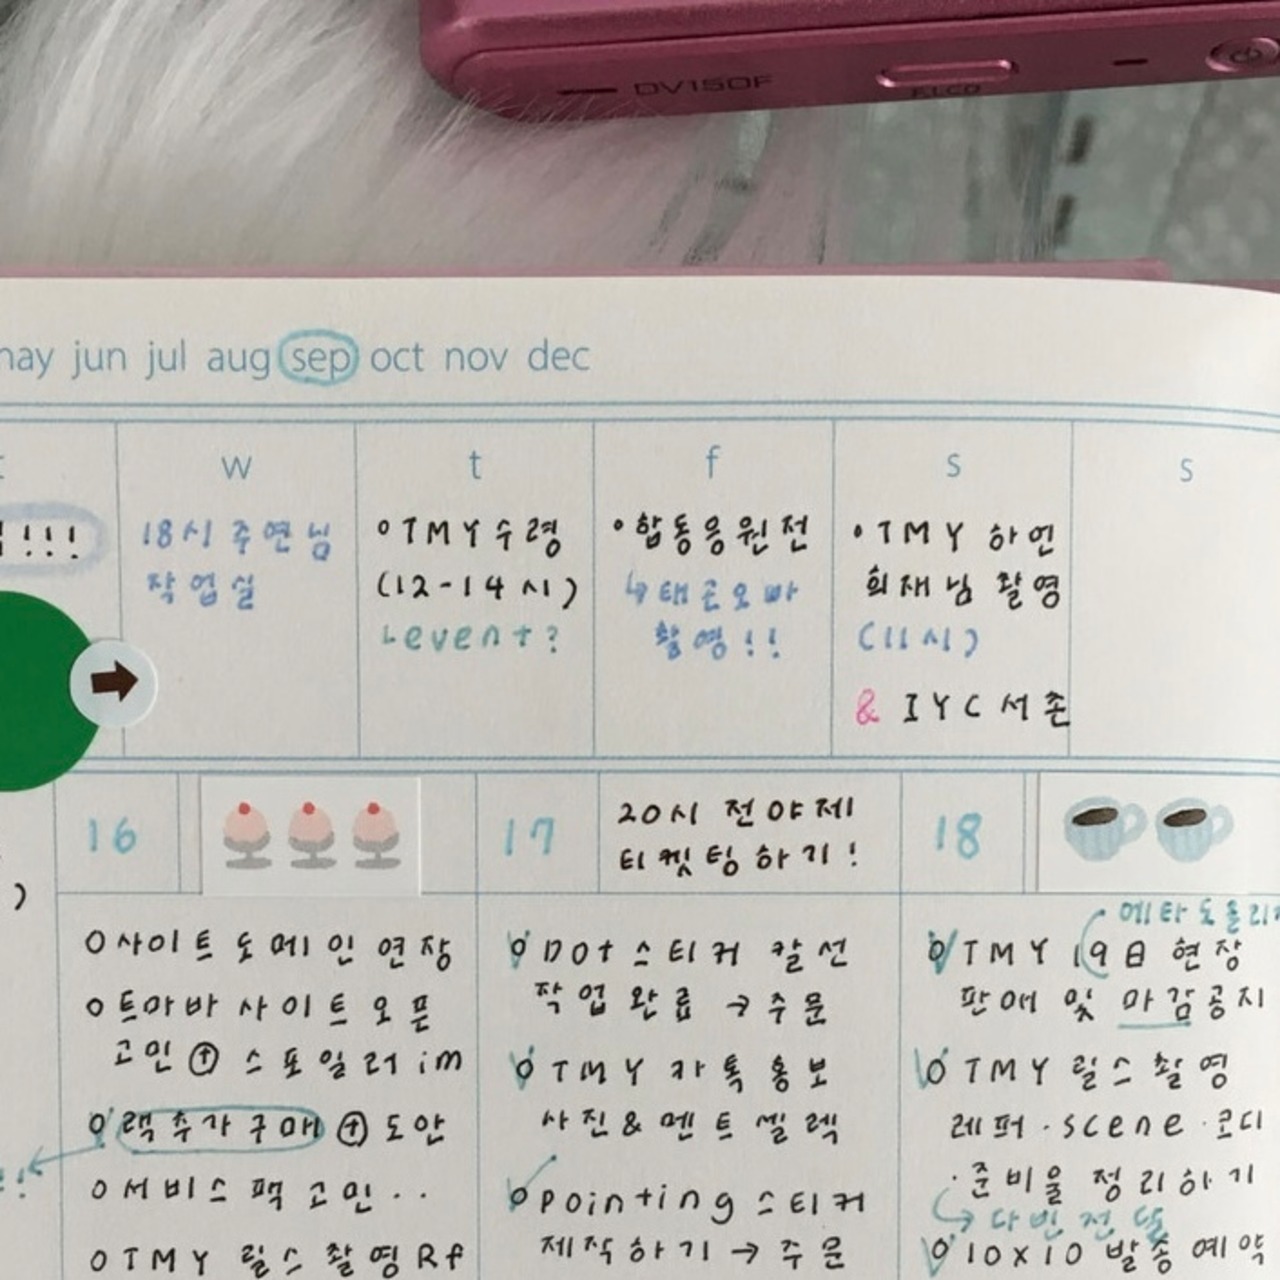 DV150F
F.LCD
may jun jul aug sep oct nov dec
w
t
f
s
s
!!!
18시 주연님
작업실
TMY수령
(12-14시)
event?
합동응원전
↳태근오빠
촬영!!
·TMY 하언
희재님 촬영
(11시)
& IYC서촌
16
17
20시 전야제
티켓팅하기!
18
)
사이트 도메인 연장
트마바 사이트 오픈
고민 ⊕ 스포일러 im
랙추가구매 ⊕ 도안
서비스 팩 고민..
TMY 릴스촬영Rf
DOt 스티커 칼선
작업완료 → 주문
TMY 카톡 홍보
사진&멘트 셀렉
pointing 스티커
제작하기 → 주문
메타 도
TMY 19日 현장
판매 및 마감공지
TMY 릴스 촬영
레퍼·scene·코디
·준비물 정리하기
↳ 다빈전달
10x10 발송 예약